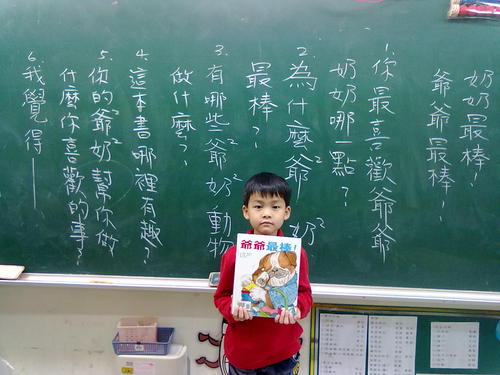 奶奶最棒!
爺爺最棒!
1.你最喜歡爺爺
奶奶哪一點?
2.為什麼爺² 奶²
最棒?
3.有哪些爺²奶²動物
做什麼?
4.這本書哪裡有趣?
5.你的爺²奶²幫你做
什麼你喜歡的事?
6.我覺得——
爺爺最棒!